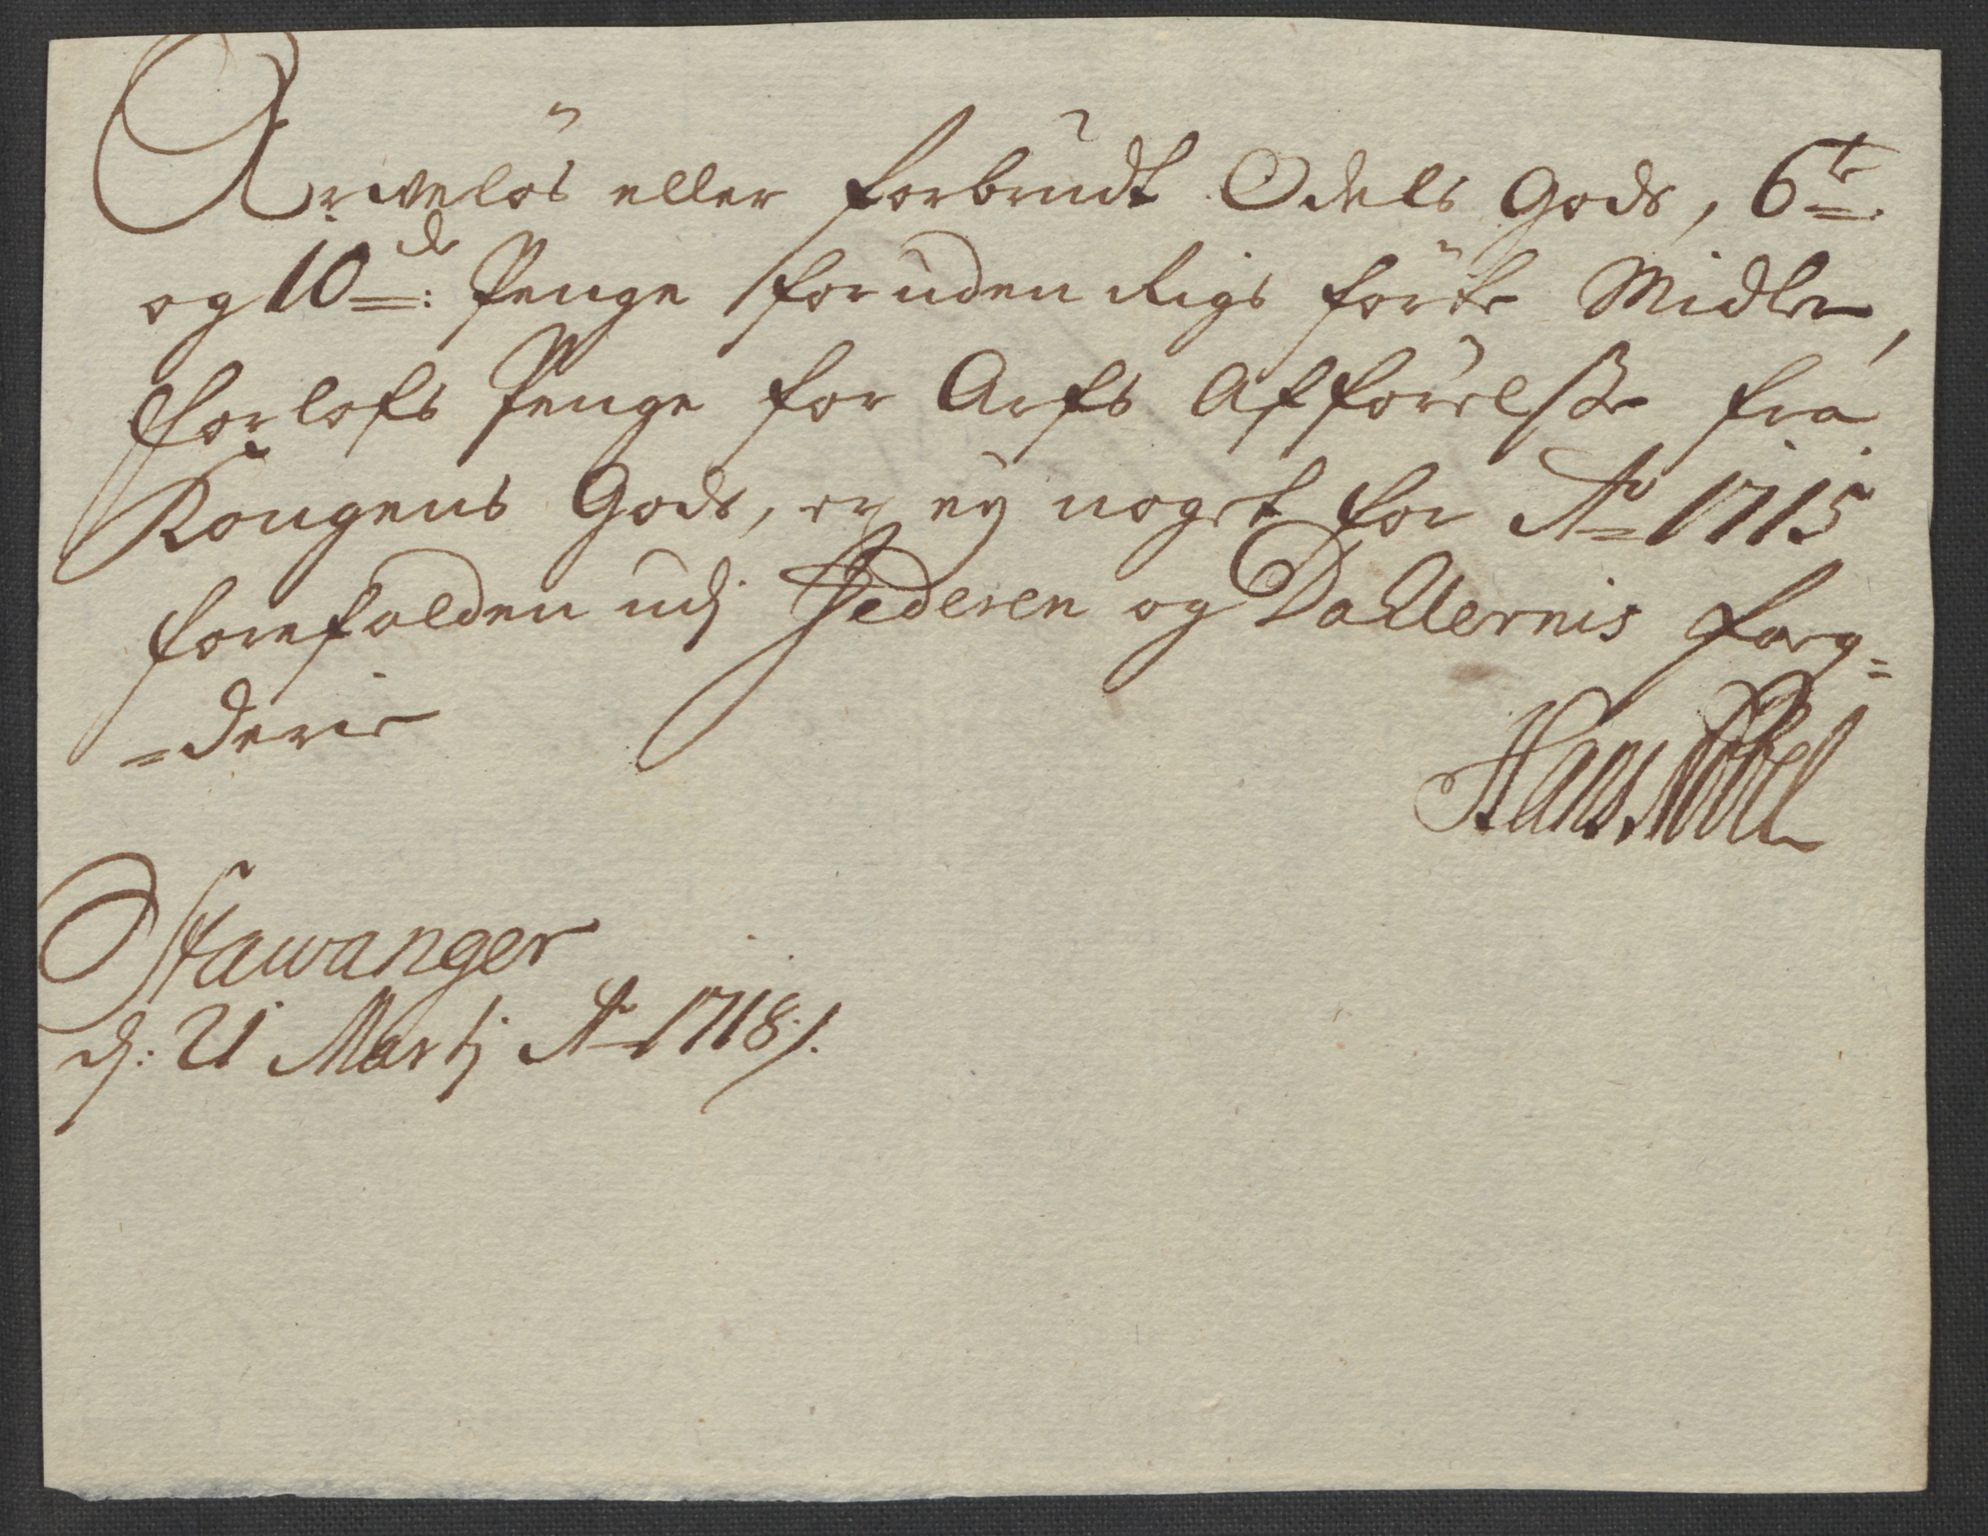 Arweløs eller forbrudt Odels Gods, 6te
og 10de: Penge foruden Rigs førte Midler,
forlofs Penge for Arfs Afførelsse fra
Kongens Gods, er ey noget for Ao 1715
forefalden udj Jederen og Dallernis fog=
=derie
Hans Nobel
Stawanger
d: 21 Martj Ao 1718 /.